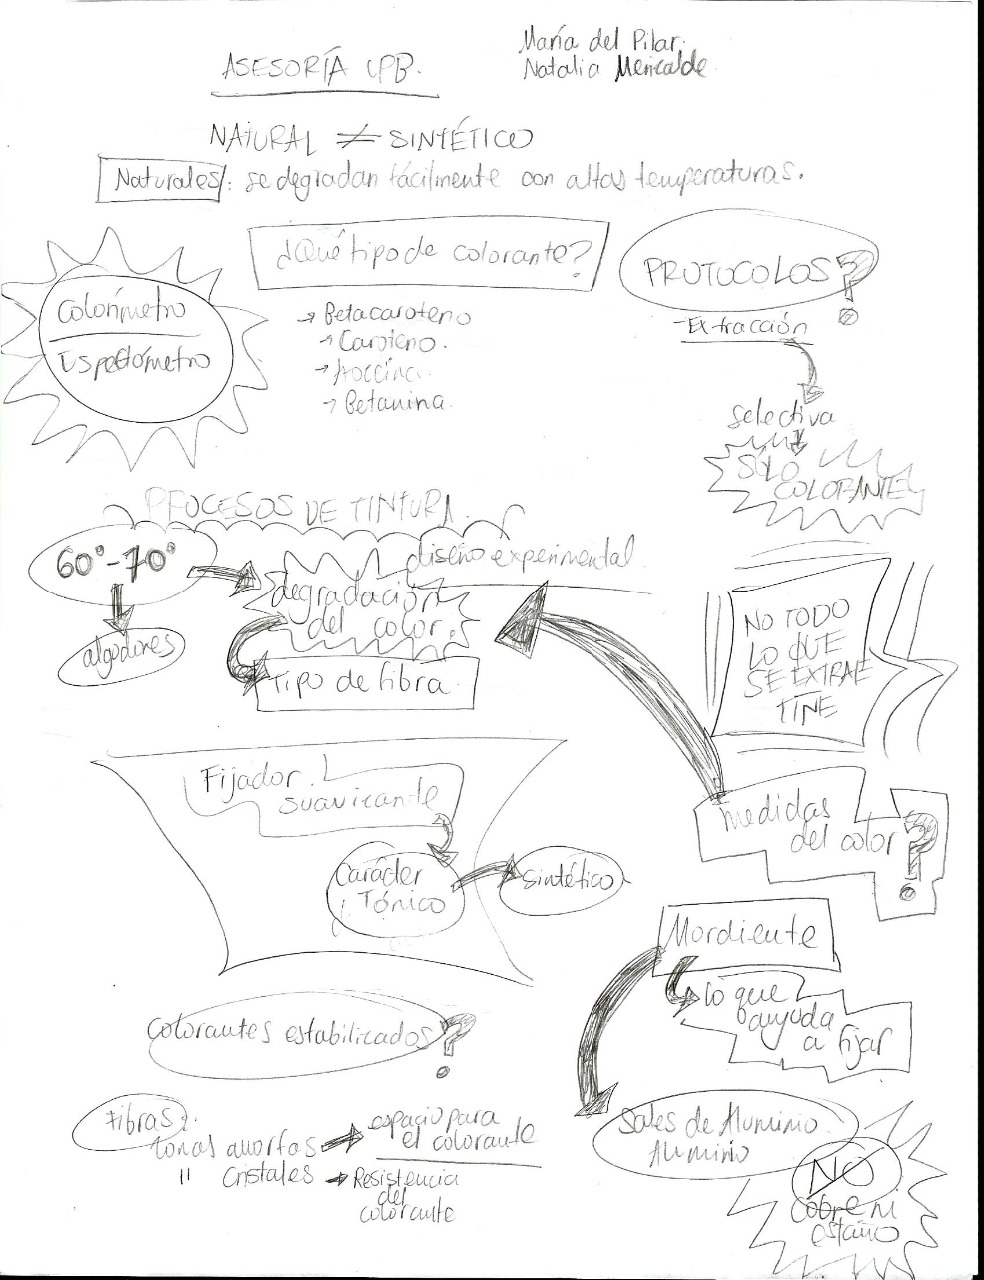 María del Pilar.
Natalia Mericalde.
ASESORÍA UPB.
NATURAL ≠ SINTÉTICO
Naturales: se degradan fácilmente con altas temperaturas.
¿Qué tipo de colorante?
→ Betacaroteno
→ Caroteno.
→
→ Betanina.
Colorímetro
Espectómetro
PROTOCOLOS?
- Extracción
selectiva
SÓLO
COLORANTE
PROCESOS DE TINTURA.
60° - 70°
algodones
diseño experimental
degradación
del color.
Tipo de fibra.
NO TODO
LO QUE
SE EXTRAE
TIÑE
Fijador.
suavizante
Carácter
Tónico
sintético
medidas
del color?
Mordiente
lo que
ayuda
a fijar
Sales de Aluminio.
Aluminio
NO
cobre ni
estaño
colorantes estabilizados?
Fibras:
zonas amorfas → espacio para
el colorante
" cristales → Resistencia
del
colorante